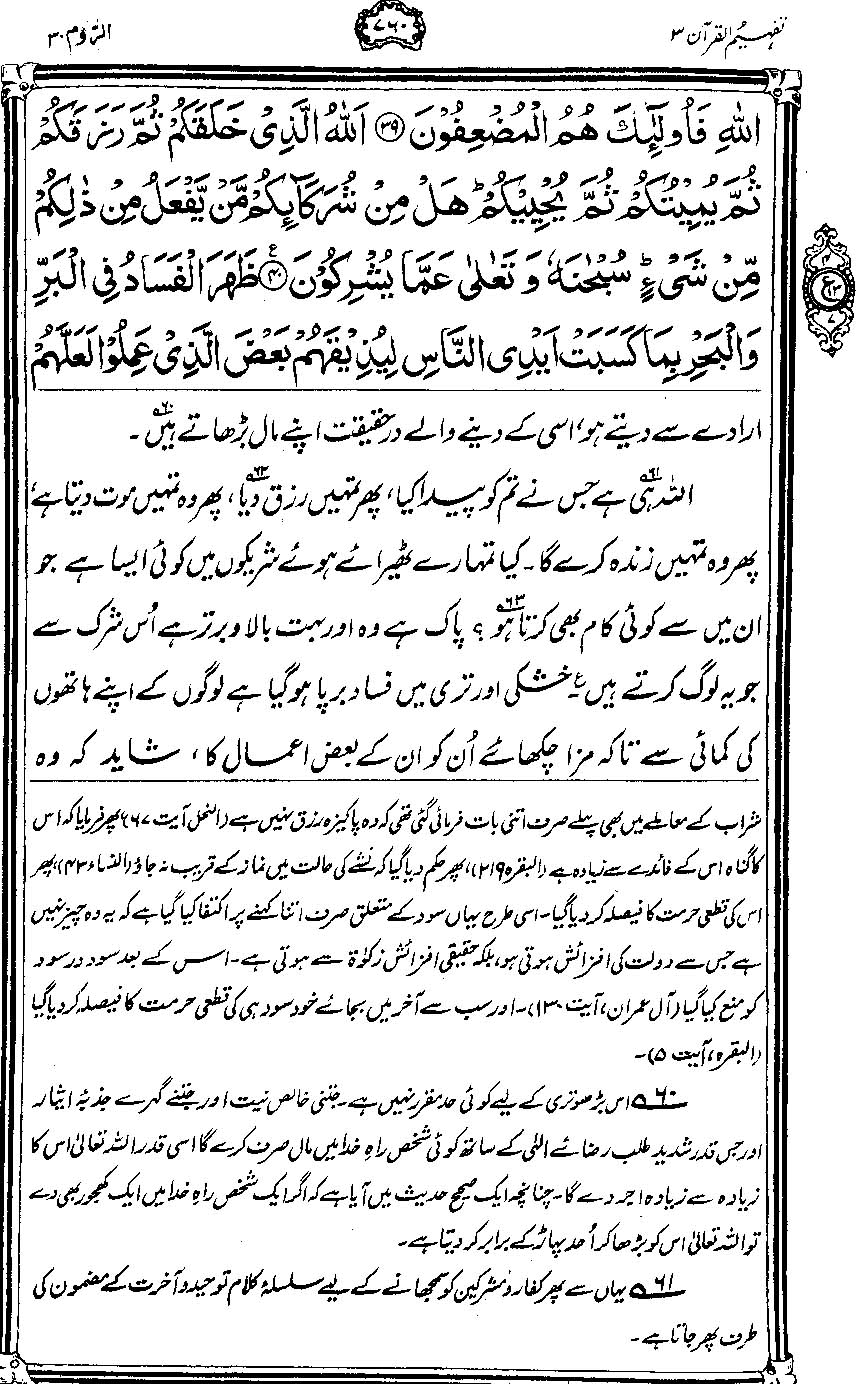 تفہیم القرآن ۳
۷۶۰
الرُّوم ۳۰
اللّٰهِ فَاُولٰٓئِكَ هُمُ الْمُضْعِفُوْنَ ﴿۳۹﴾ اَللّٰهُ الَّذِیْ خَلَقَكُمْ ثُمَّ رَزَقَكُمْ
ثُمَّ یُمِیْتُكُمْ ثُمَّ یُحْیِیْكُمْ ؕ هَلْ مِنْ شُرَكَآئِكُمْ مَّنْ یَّفْعَلُ مِنْ ذٰلِكُمْ
مِّنْ شَیْءٍ ؕ سُبْحٰنَهٗ وَ تَعٰلٰی عَمَّا یُشْرِكُوْنَ ﴿۴۰﴾ ع ظَهَرَ الْفَسَادُ فِی الْبَرِّ
۴ ع ۱۳ ۷
وَالْبَحْرِ بِمَا كَسَبَتْ اَیْدِی النَّاسِ لِیُذِیْقَهُمْ بَعْضَ الَّذِیْ عَمِلُوْا لَعَلَّهُمْ
ارادے سے دیتے ہو، اسی کے دینے والے درحقیقت اپنے مال بڑھاتے ہیں۶۰۔
اللہ ہی۶۱ ہے جس نے تم کو پیدا کیا، پھر تمہیں رزق دیا۶۲، پھر وہ تمہیں موت دیتا ہے،
پھر وہ تمہیں زندہ کرے گا۔ کیا تمہارے ٹھیرائے ہوئے شریکوں میں کوئی ایسا ہے جو
ان میں سے کوئی کام بھی کرتا ہو۶۳؟ پاک ہے وہ اور بہت بالا و برتر ہے اُس شرک سے
جو یہ لوگ کرتے ہیں ع خشکی اور تری میں فساد برپا ہوگیا ہے لوگوں کے اپنے ہاتھوں
کی کمائی سے تاکہ مزا چکھائے اُن کو ان کے بعض اعمال کا، شاید کہ وہ
شراب کے معاملے میں بھی پہلے صرف اتنی بات فرمائی گئی تھی کہ وہ پاکیزہ رزق نہیں ہے (النحل آیت ۶۷) پھر فرمایا کہ اس
کا گناہ اس کے فائدے سے زیادہ ہے (البقرہ ۲۱۹)، پھر حکم دیا گیا کہ نشے کی حالت میں نماز کے قریب نہ جاؤ (النساء ۴۳)، پھر
اس کی قطعی حرمت کا فیصلہ کر دیا گیا۔ اسی طرح یہاں سود کے متعلق صرف اتنا کہنے پر اکتفا کیا گیا ہے کہ یہ وہ چیز نہیں
ہے جس سے دولت کی افزائش ہوتی ہو، بلکہ حقیقی افزائش زکوٰۃ سے ہوتی ہے۔ اس کے بعد سود در سود
کو منع کیا گیا (آل عمران، آیت ۱۳۰)۔ اور سب سے آخر میں بجائے خود سود ہی کی قطعی حرمت کا فیصلہ کر دیا گیا
(البقرہ، آیت ۵)۔
۶۰ اس بڑھوتری کے لیے کوئی حد مقرر نہیں ہے۔ جتنی خالص نیت اور جتنے گہرے جذبۂ ایثار
اور جس قدر شدید طلب رضائے الٰہی کے ساتھ کوئی شخص راہِ خدا میں مال صرف کرے گا اسی قدر اللہ تعالیٰ اس کا
زیادہ سے زیادہ اجر دے گا۔ چنانچہ ایک صحیح حدیث میں آیا ہے کہ اگر ایک شخص راہِ خدا میں ایک کھجور بھی دے
تو اللہ تعالیٰ اس کو بڑھا کر اُحد پہاڑ کے برابر کر دیتا ہے۔
۶۱ یہاں سے پھر کفار و مشرکین کو سمجھانے کے لیے سلسلۂ کلام توحید و آخرت کے مضمون کی
طرف پھر جاتا ہے۔